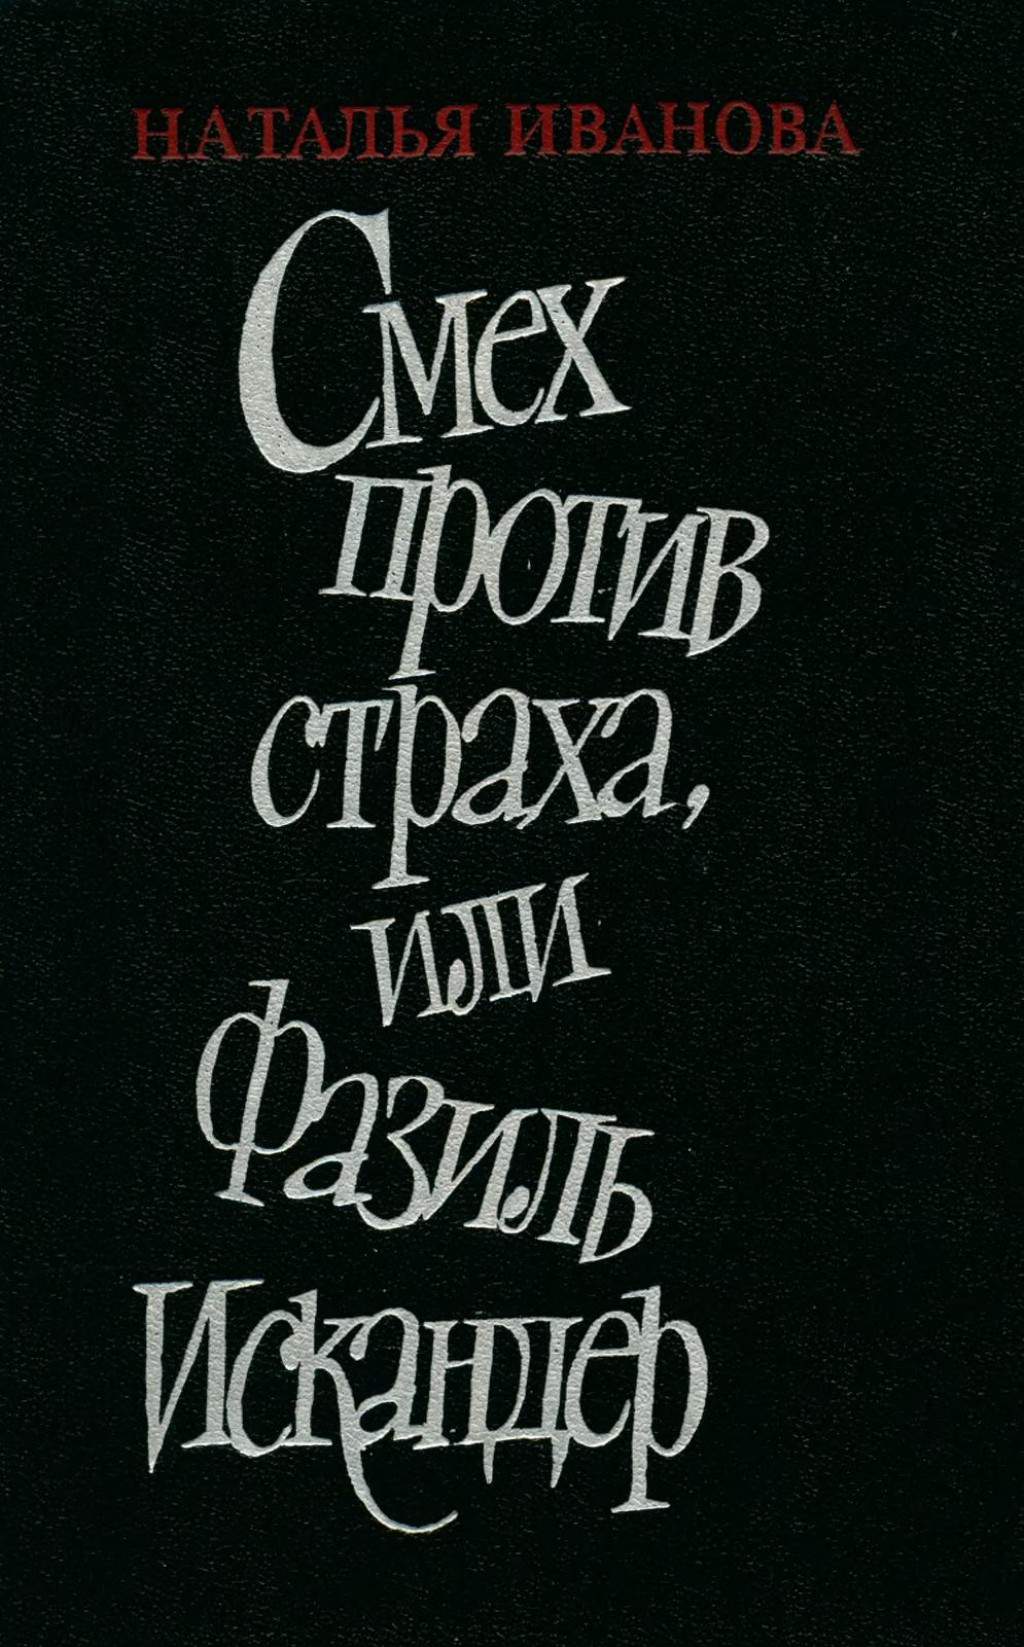 НАТАЛЬЯ ИВАНОВА
Смех
против
страха,
или
Фазиль
Искандер